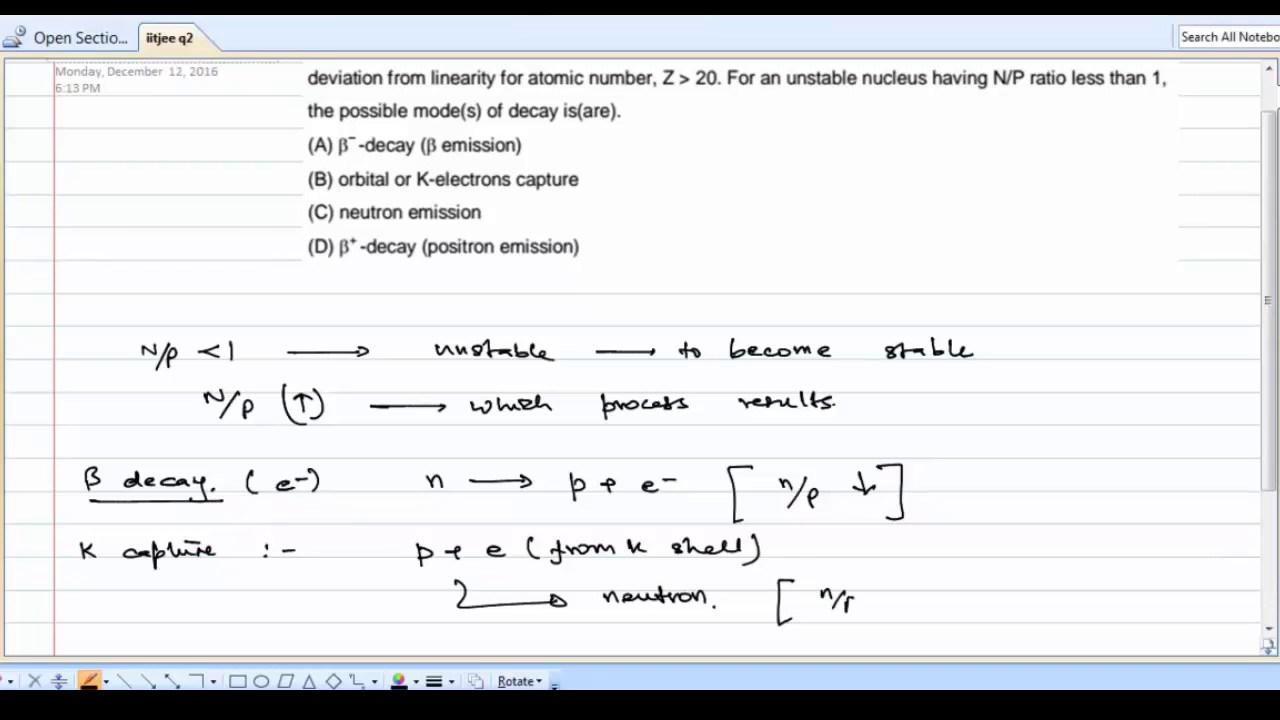 Open Sectio... iitjee q2 Search All Notebo
Monday, December 12, 2016
6:13 PM
deviation from linearity for atomic number, Z > 20. For an unstable nucleus having N/P ratio less than 1,
the possible mode(s) of decay is(are).
(A) β⁻ -decay (β emission)
(B) orbital or K-electrons capture
(C) neutron emission
(D) β⁺ -decay (positron emission)
N/p < 1 ⟶ unstable ⟶ to become stable
N/p (↑) ⟶ which process results.
β decay. (e⁻) n ⟶ p + e⁻ [ n/p ↓ ]
K capture :- p + e (from k shell)
⟶ neutron. [ n/p
Rotate